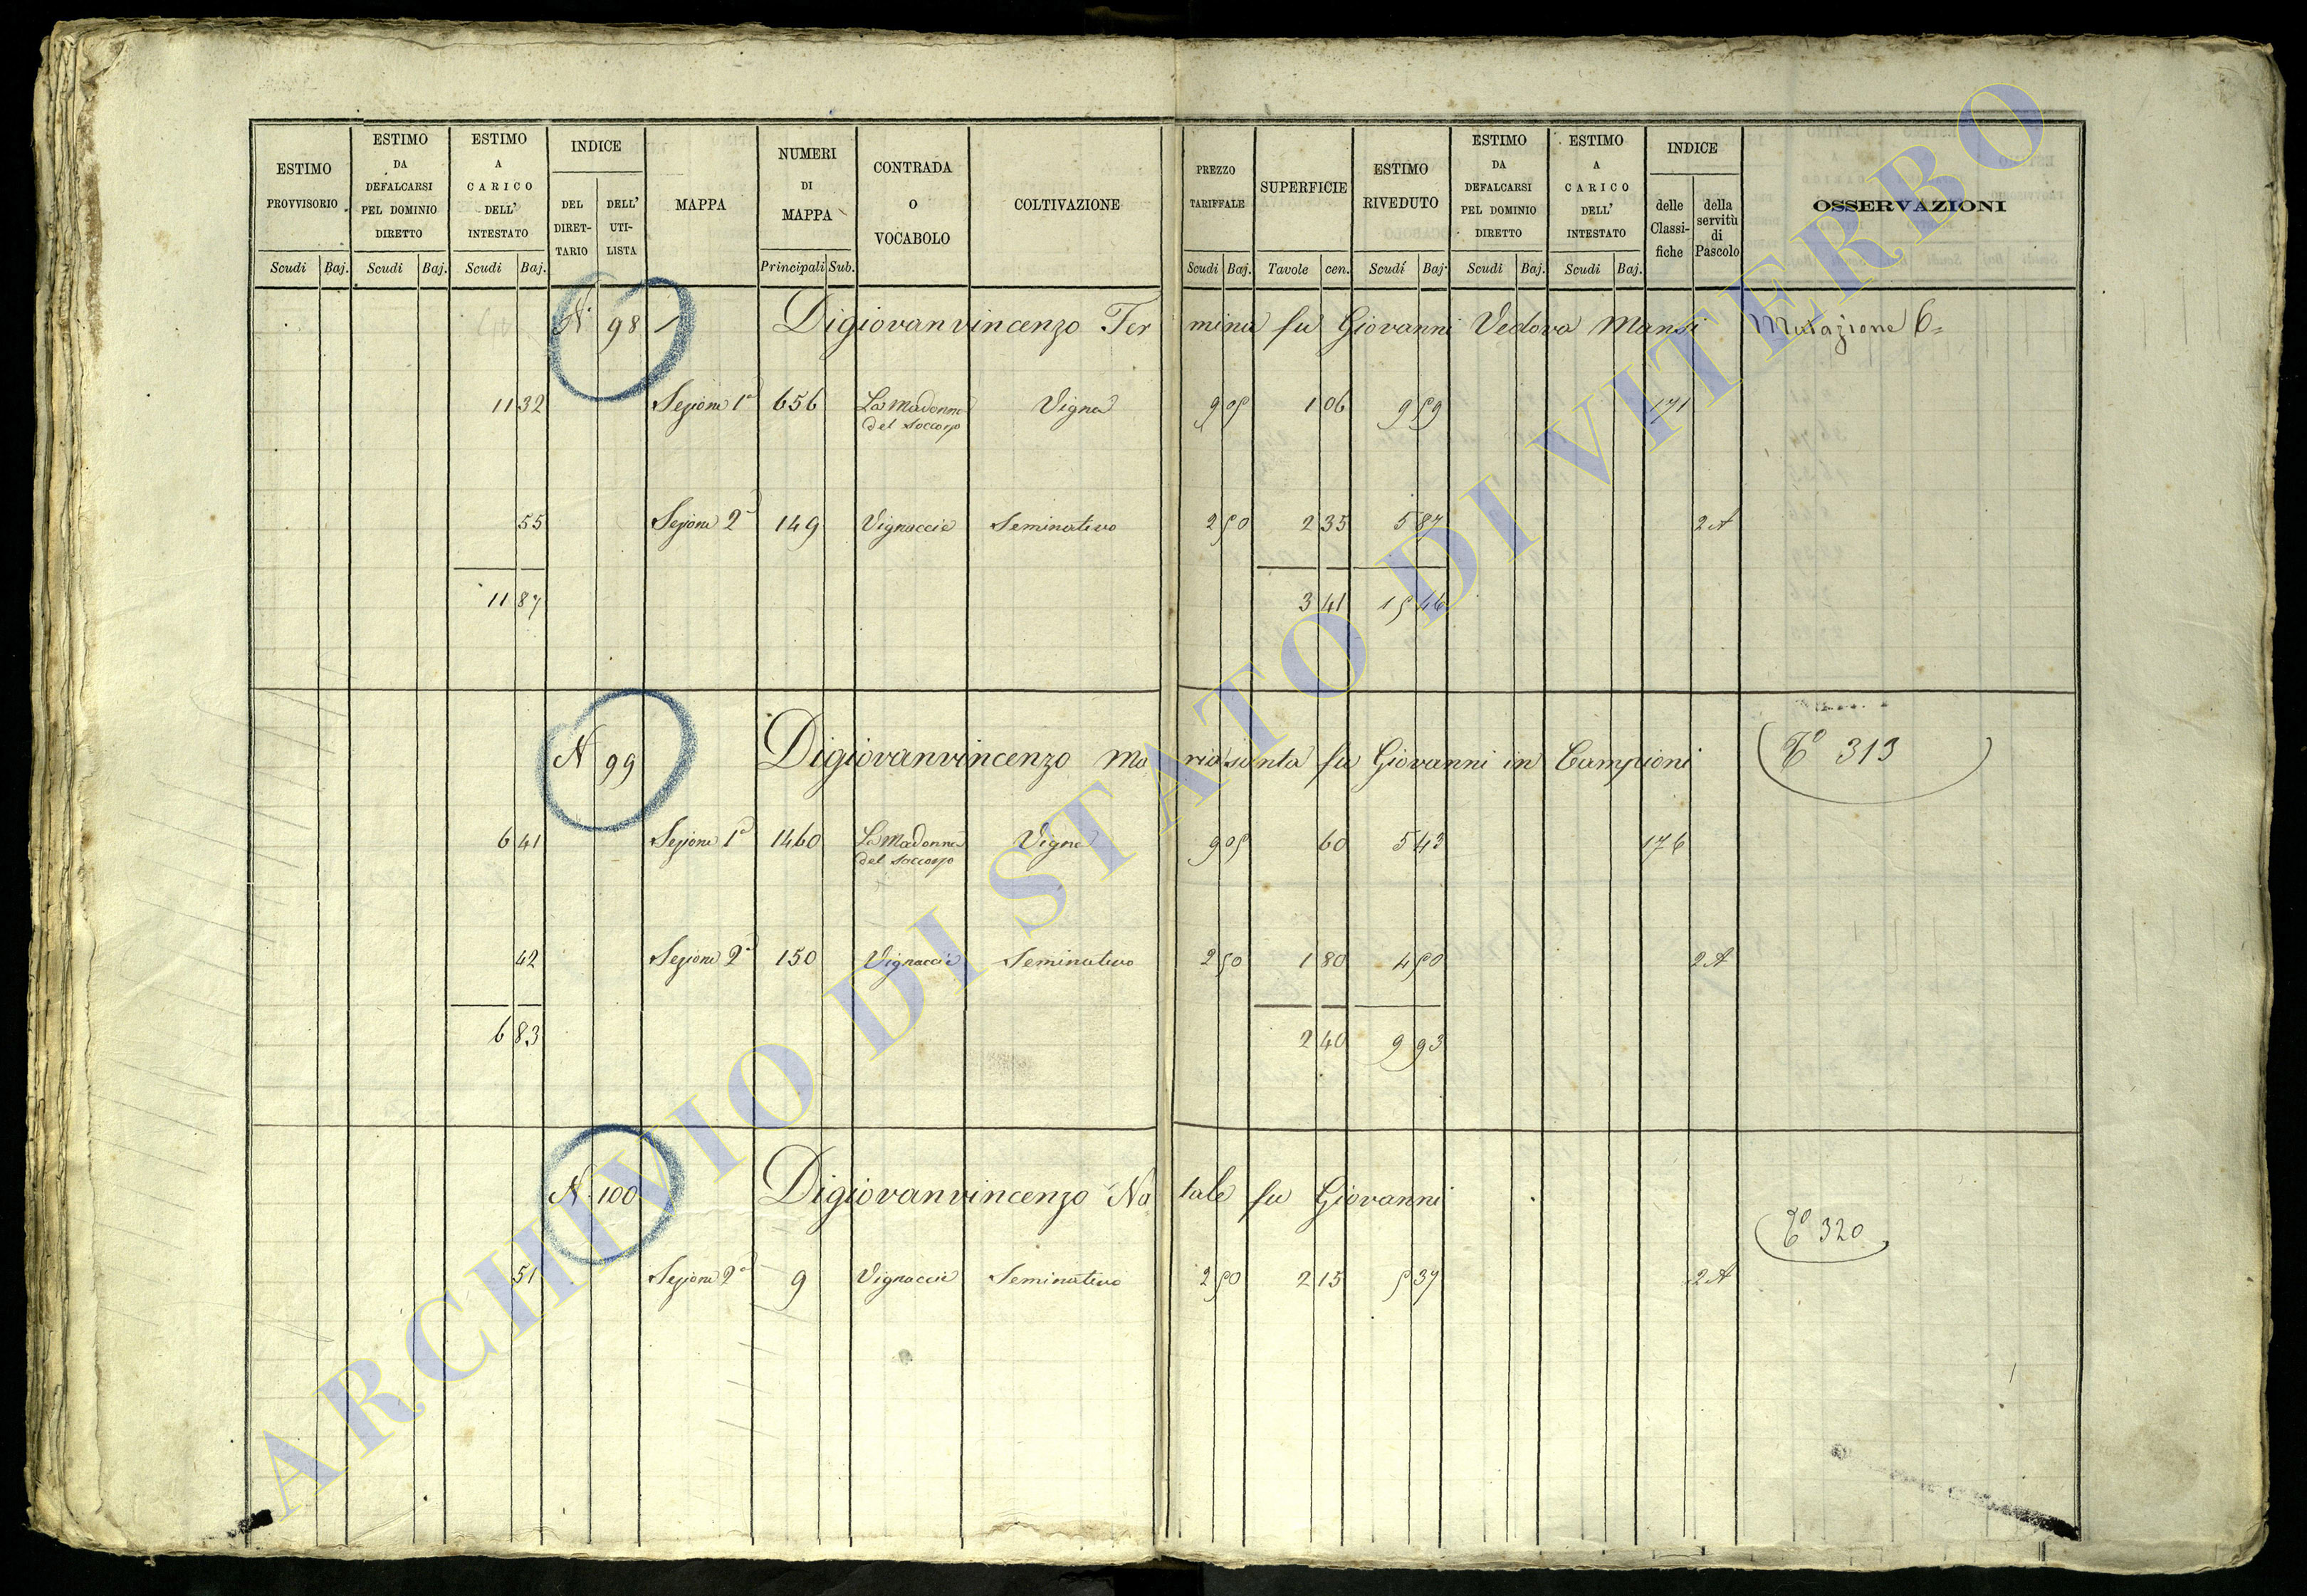 ESTIMO PROVVISORIO
ESTIMO DA DEFALCARSI PEL DOMINIO DIRETTO
ESTIMO A CARICO DELL' INTESTATO
INDICE
DEL DIRET- TARIO
DELL' UTI- LISTA
MAPPA
NUMERI DI MAPPA
CONTRADA O VOCABOLO
COLTIVAZIONE
PREZZO TARIFFALE
SUPERFICIE
ESTIMO RIVEDUTO
ESTIMO DA DEFALCARSI PEL DOMINIO DIRETTO
ESTIMO A CARICO DELL' INTESTATO
INDICE
delle Classi- fiche
della servitù di Pascolo
OSSERVAZIONI
Scudi Baj. Scudi Baj. Scudi Baj. Principali Sub. Scudi Baj. Tavole cen. Scudi Baj. Scudi Baj. Scudi Baj.
N. 98 Digiovanvincenzo Termina fu Giovanni Vedova Mansi Mutazione 6
11 32 Sezione 1ª 656 La Madonna del Soccorso Vigna 9 05 1 06 9 59 171
55 Sezione 2ª 149 Vignaccie Seminativo 2 50 2 35 5 87 2 A
11 87 3 41 15 46
N 99 Digiovanvincenzo Mariasanta fu Giovanni in Campioni To 313
6 41 Sezione 1ª 1460 La Madonna del Soccorso Vigna 9 05 60 5 43 176
42 Sezione 2ª 150 Vignaccie Seminativo 2 50 1 80 4 50 2 A
6 83 2 40 9 93
N. 100 Digiovanvincenzo Natale fu Giovanni
To 320
51 Sezione 2ª 9 Vignaccie Seminativo 2 50 2 15 5 37 2 A
ARCHIVIO DI STATO DI VITERBO